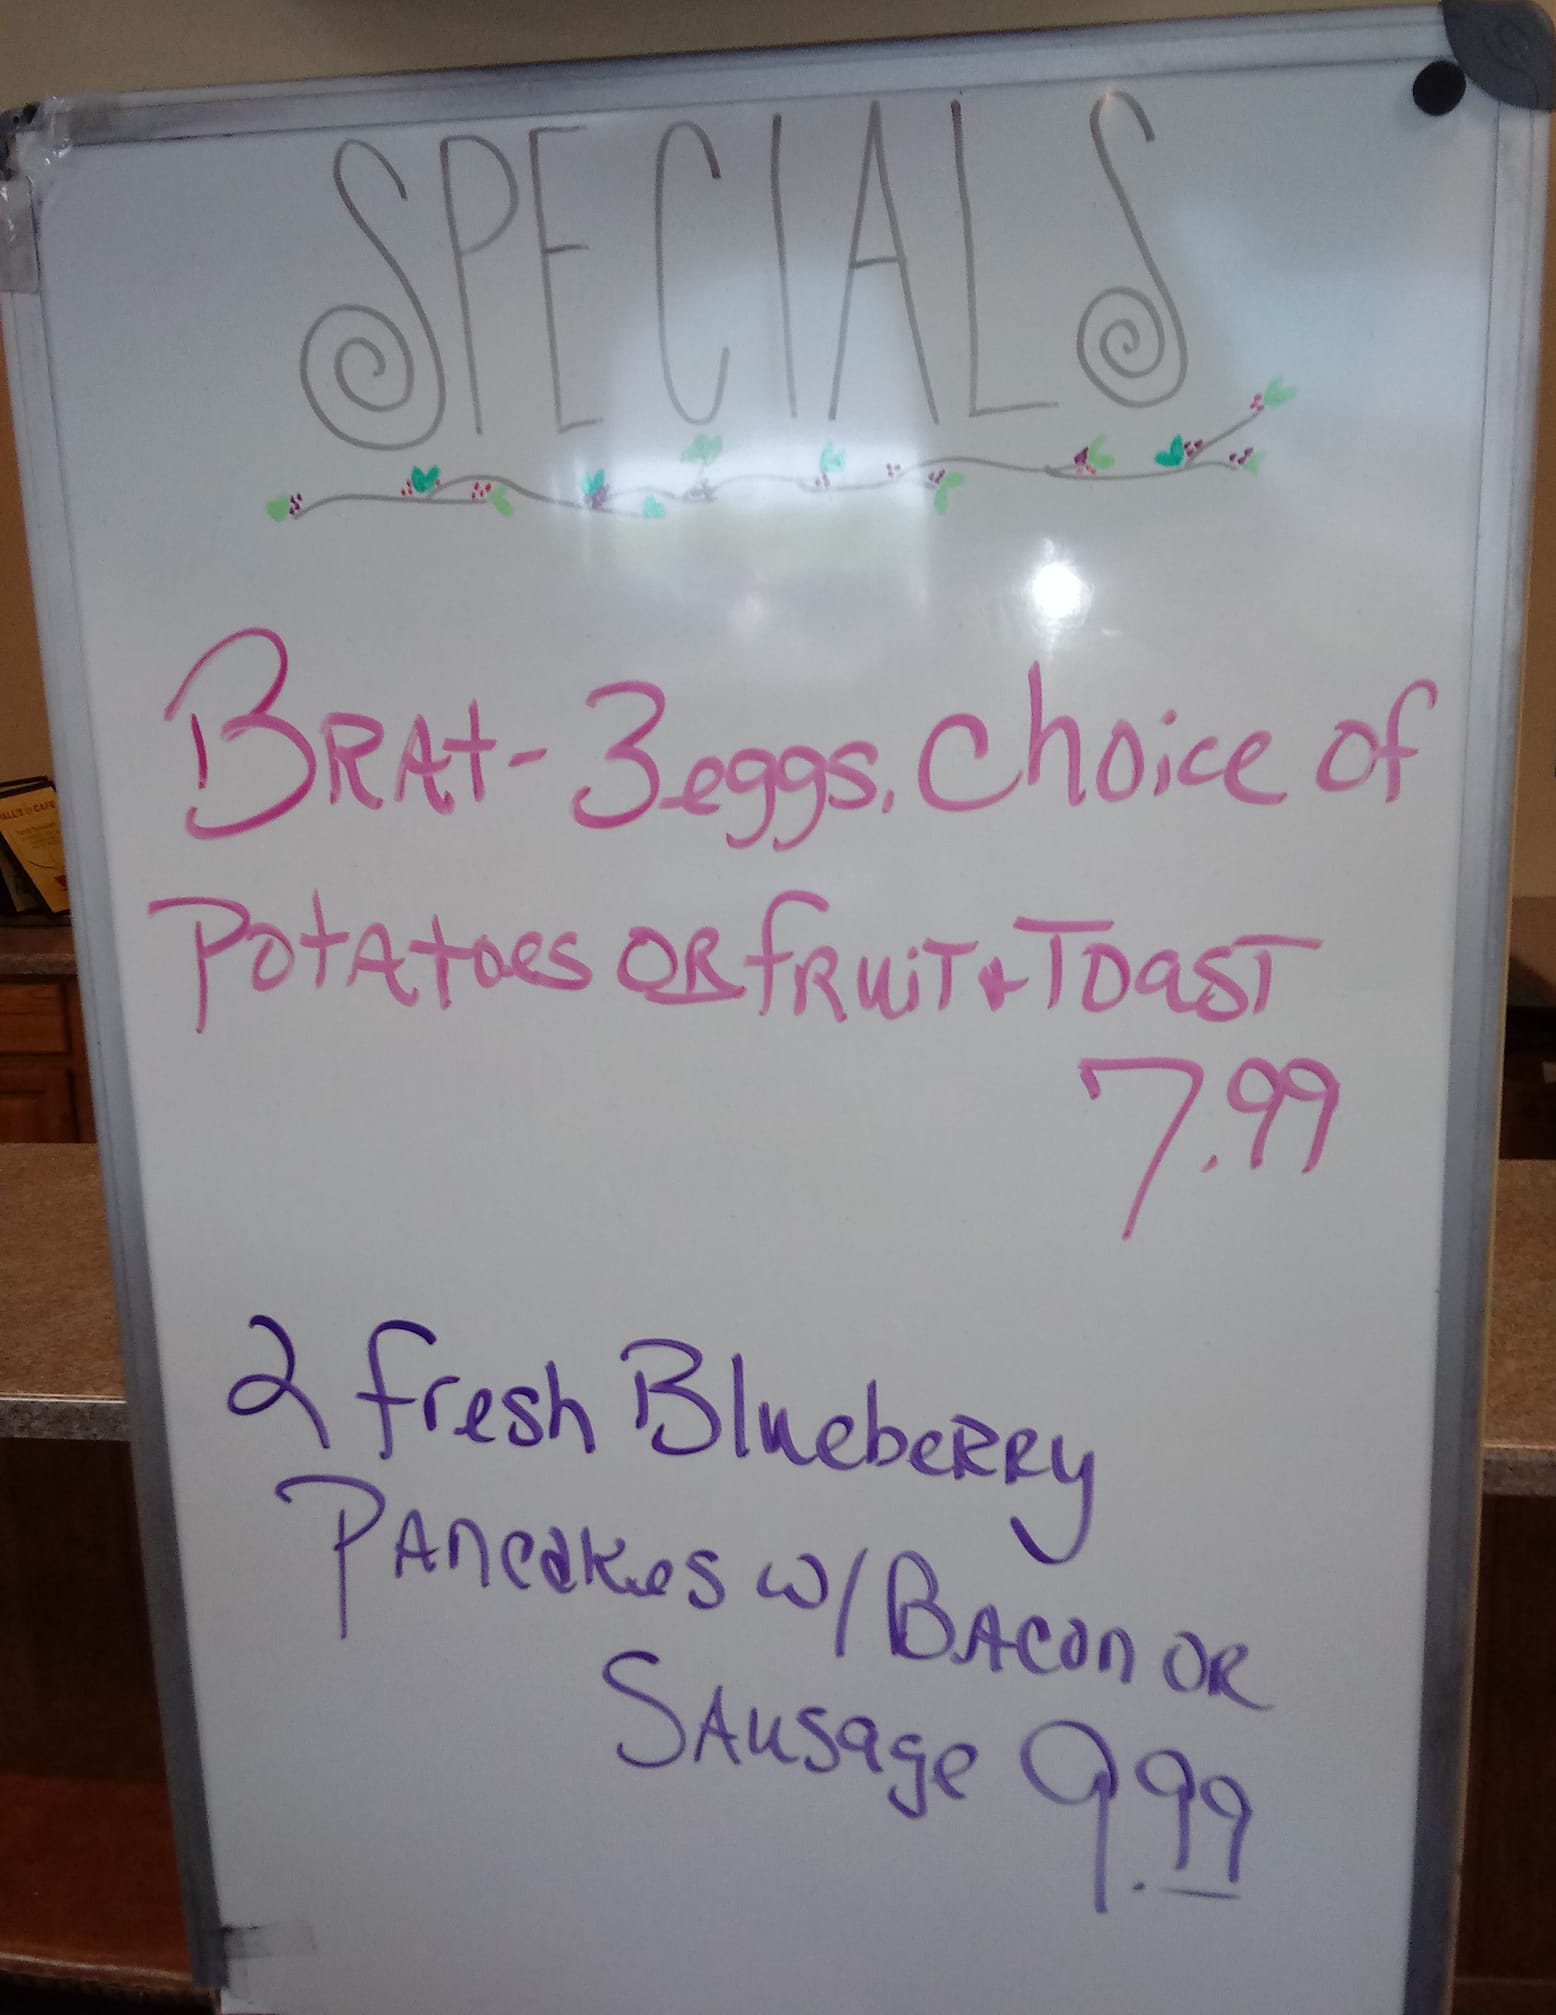 SPECIALS
BRAt- 3 eggs, choice of
POtAtoes OR fRuiT & TOasT
7.99
2 fresh BluebeRRy
PAncakes w/ BAcon OR
SAusage 9.99
CAFE